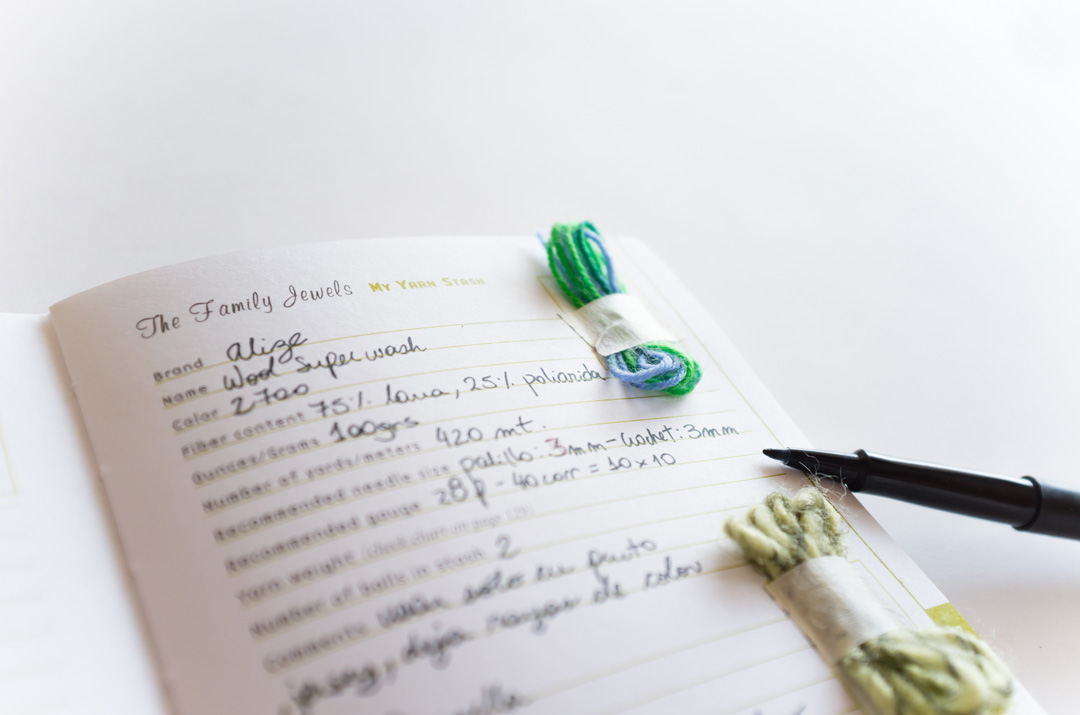 The Family Jewels My Yarn Stash
Brand alize
Name Wool Superwash
Color 2700
Fiber content 75% lana, 25% poliamida
Ounces/Grams 100grs
Number of yards/meters 420 mt.
Recommended needle size palillo: 3mm - Crochet: 3mm
Recommended gauge 28p - 40corr = 10x10
Yarn weight (check chart on page 129)
Number of balls in stash 2
Comments en punto
jersey, deja de color